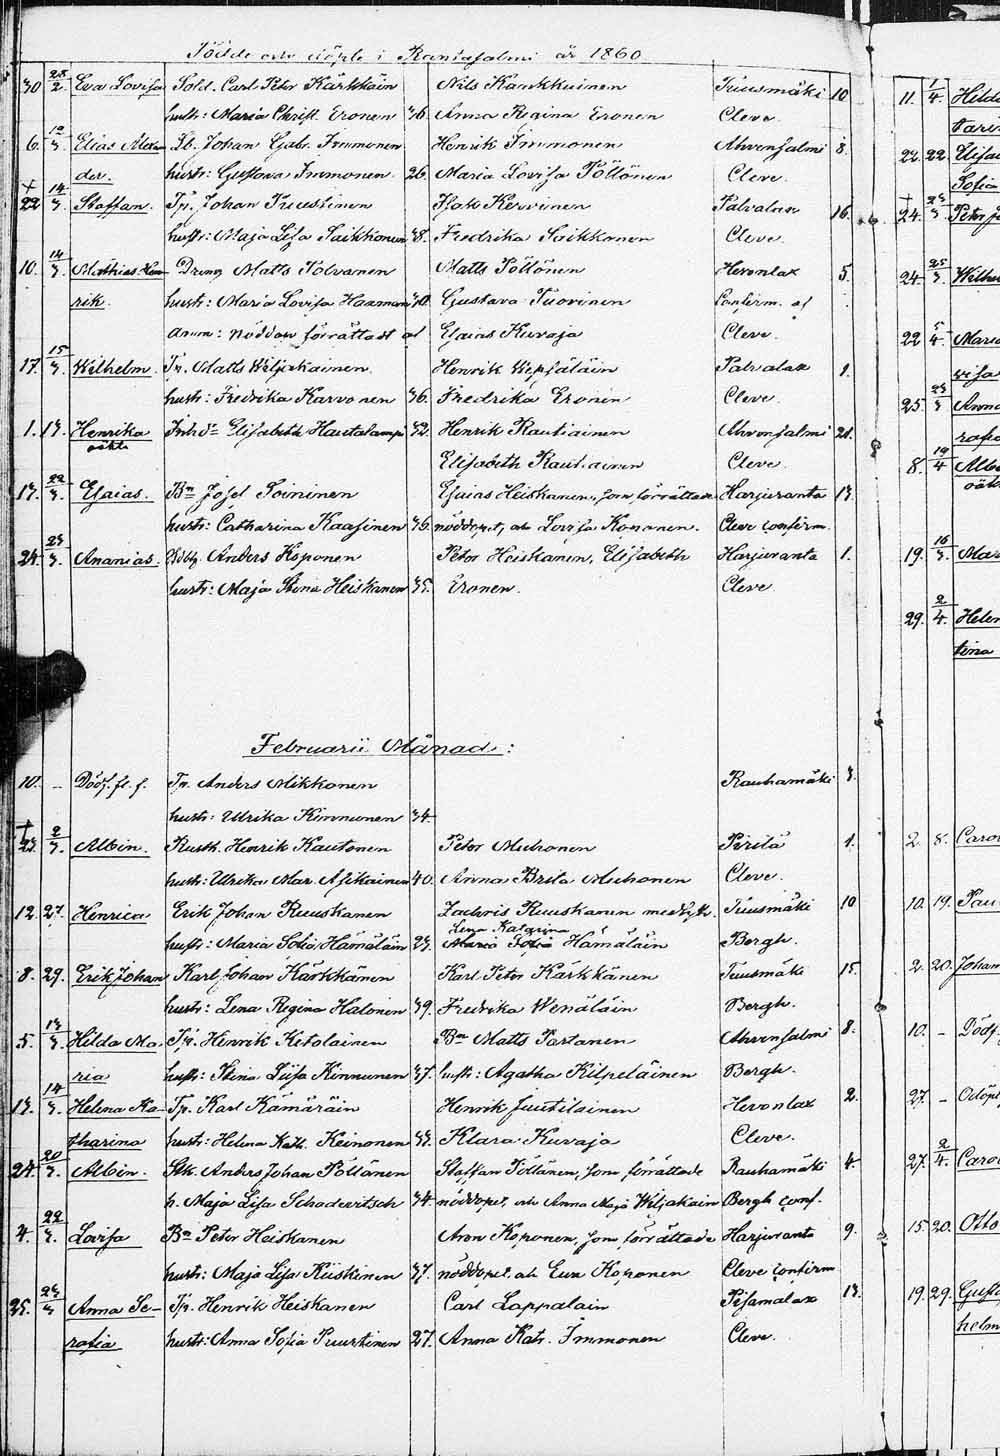 Födde och döpte i Rantasalmi år 1860
30 28/2. Eva Lovisa Sold. Carl Peter Kärkkäin Nils Karkkuinen Tuusmäki 10
hustr: Maria Christ. Eronen 36. Anna Regina Eronen Cleve.
6. 12/3. Elias Alexan Lb. Johan Gabr. Immonen Henrik Immonen Ahvensalmi 8.
der. hustr: Gustava Immonen 26. Maria Lovisa Pöllönen Cleve.
+ 22 14/3. Staffan. Tp. Johan Puustinen Isak Kervinen Palvalax 16.
hustr: Maja Lisa Saikkonen 38. Fredrika Saikkonen Cleve.
10. 14/3. Mathias Hen Dräng Matts Tolvanen Matts Pöllönen Hevonlax 5.
rik. hustr: Maria Lovisa Haamanen Gustava Tuovinen Confirm. af
Anm: Nöddop förrättadt af Esaias Kuvaja Cleve.
17. 15/3. Wilhelm. Tp. Matts Wiljakainen. Henrik Wepsäläin Palvalax 1.
hustr: Fredrika Karvonen 36. Fredrika Eronen Cleve.
1. 17. Henrika Inh. dr Elisabeth Hautalampi 32. Henrik Rautiainen Ahvensalmi 21.
oäkta Elisabeth Rautiainen Cleve.
13. 22/3. Esaias. Bn Josef Soininen Esaias Heiskanen, som förrättade Harjuranta 13.
hustr: Catharina Kaasinen 35. nöddopet, och Lovisa Kononen. Cleve confirm.
24. 23/3. Ananias. Anders Koponen Peter Heiskanen, Elisabeth Harjuranta 1.
hustr: Maja Stina Heiskanen 35. Eronen. Cleve
Februarii Månad:
10. – Dödf. fl. f. Tp. Anders Mikkonen Rauhamäki 3.
hustr: Ulrika Kinnunen 34.
+ 23. 2/3. Albin. Rusth. Henrik Kautonen Peter Muhonen Pirilä 1.
hustr: Ulrika Mar. Asikainen 40. Anna Brita Muhonen Cleve.
12. 27. Henrica Erik Johan Ruuskanen Zachris Ruuskanen med hstr. Tuusmäki 10
Lena Katarina
hustr: Maria Sofia Hämäläin 23. Maria Sofia Hämäläin Bergh.
8. 29. Erik Johan Karl Johan Kärkkänen Karl Peter Kärkkänen Tuusmäki 15.
hustr: Lena Regina Halonen 39. Fredrika Wenäläin Bergh.
5. 13/3. Hilda Ma- Tp. Henrik Ketolainen Bn Matts Partanen Ahvensalmi 8.
ria hustr: Stina Lisa Kinnunen 37. hustr: Agatha Kilpeläinen Bergh.
13. 14/3. Helena Ka- Tp. Karl Kämäräin Henrik Juutilainen Hevonlax 2.
tharina hustr: Helena Kath. Keinonen 33. Klara Kuvaja Cleve.
24. 20/3. Albin. Anders Johan Pöllänen Staffan Pöllänen, som förrättade Rauhamäki 4.
h. Maja Lisa Schadevitsch 34. nöddopet, och Anna Maja Wiljakain Bergh conf.
4. 22/3. Lovisa Bn Peter Heiskanen Aron Koponen, som förrättade Harjuranta 9.
hustr: Maja Lisa Kiiskinen 37. nöddopet, och Eva Koponen Cleve confirm
25. 23/3 Anna Se- Tp. Henrik Heiskanen Carl Lappalain Pisamalax 13.
rafia hustr: Anna Sofia Puustinen 27. Anna Kat. Immonen Cleve.
11. 1/4 Hild
tarin
22. 22. Elisa
Sofia
+ 24. 23/3 Peter J
24. 25/3 Wilhe
22 5/4. Maria
visa
25. 23/3 Anna
rafia
8. 19/4 Albi
oäkt
19. 16/3. Mar
29. 2/4. Helen
tina
2. 8. Caro
10. 19. Pau
2. 20. Johan
10. – Dödf.
27. – Odöpt
27. 2/4. Caro
15 20. Otto
19. 29. Gusta
helm